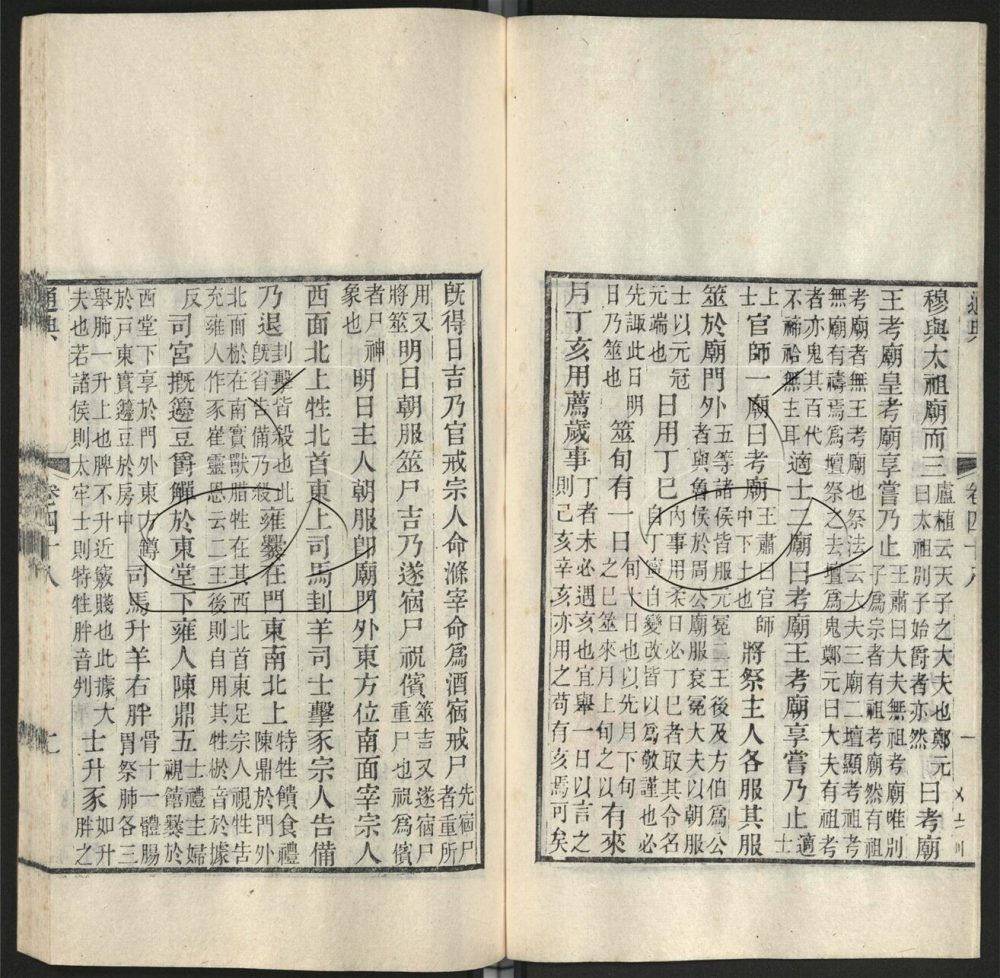 穆與太祖廟而三盧植云天子之大夫也鄭元曰太祖別子始爵者亦然曰考廟
王考廟皇考廟享嘗乃止王肅曰大夫無祖考廟唯別子爲宗者有祖考廟然有祖
考廟者無王考廟也祭法云大夫三廟二壇顯考祖考無廟有禱焉爲壇祭之去壇爲鬼鄭元曰大夫有祖考
者亦鬼其百代不禘祫無主耳適士二廟曰考廟王考廟享嘗乃止適士
上士官師一廟曰考廟王肅曰官師中下士也將祭主人各服其服
筮於廟門外五等諸侯皆服元冕二王後及方伯爲公者與魯侯於周公廟服袞冕大夫以朝服
士以元冠元端也日用丁巳內事用柔日必丁巳者取其令名自丁寧自變改皆以爲敬謹也必
先諏此日明日乃筮也筮旬有一日旬十日也以先月下旬之巳筮來月上旬之以有來
月丁亥用薦歲事丁者未必遇亥也宜舉一日以言之則己亥辛亥亦用之苟有亥焉可矣
旣得日吉乃官戒宗人命滌宰命爲酒宿戒尸先宿尸者重所
用又將筮明日朝服筮尸吉乃遂宿尸祝儐筮吉又遂宿尸重尸也祝爲儐
者尸神象也明日主人朝服卽廟門外東方位南面宰宗人
西面北上牲北首東上司馬刲羊司士擊豕宗人告備
乃退刲擊皆殺也北旣省告備乃殺雍爨在門東南北上特牲饋食禮陳鼎於門外
北面棜在南實獸腊牲在其西北首東足宗人視牲告充雍人作豕崔靈恩云二王後則自用其牲棜音於據
反司宮摡籩豆爵觶於東堂下雍人陳鼎五士禮主婦視饎爨於
西堂下享於門外東方鱒於戶東實籩豆於房中司馬升羊右胖骨十一體腸胃祭肺各三
舉肺一升上也髀不升近竅賤也此據大夫也若諸侯則太牢士則特牲胖音判士升豕如升胖之
通典 卷四十八